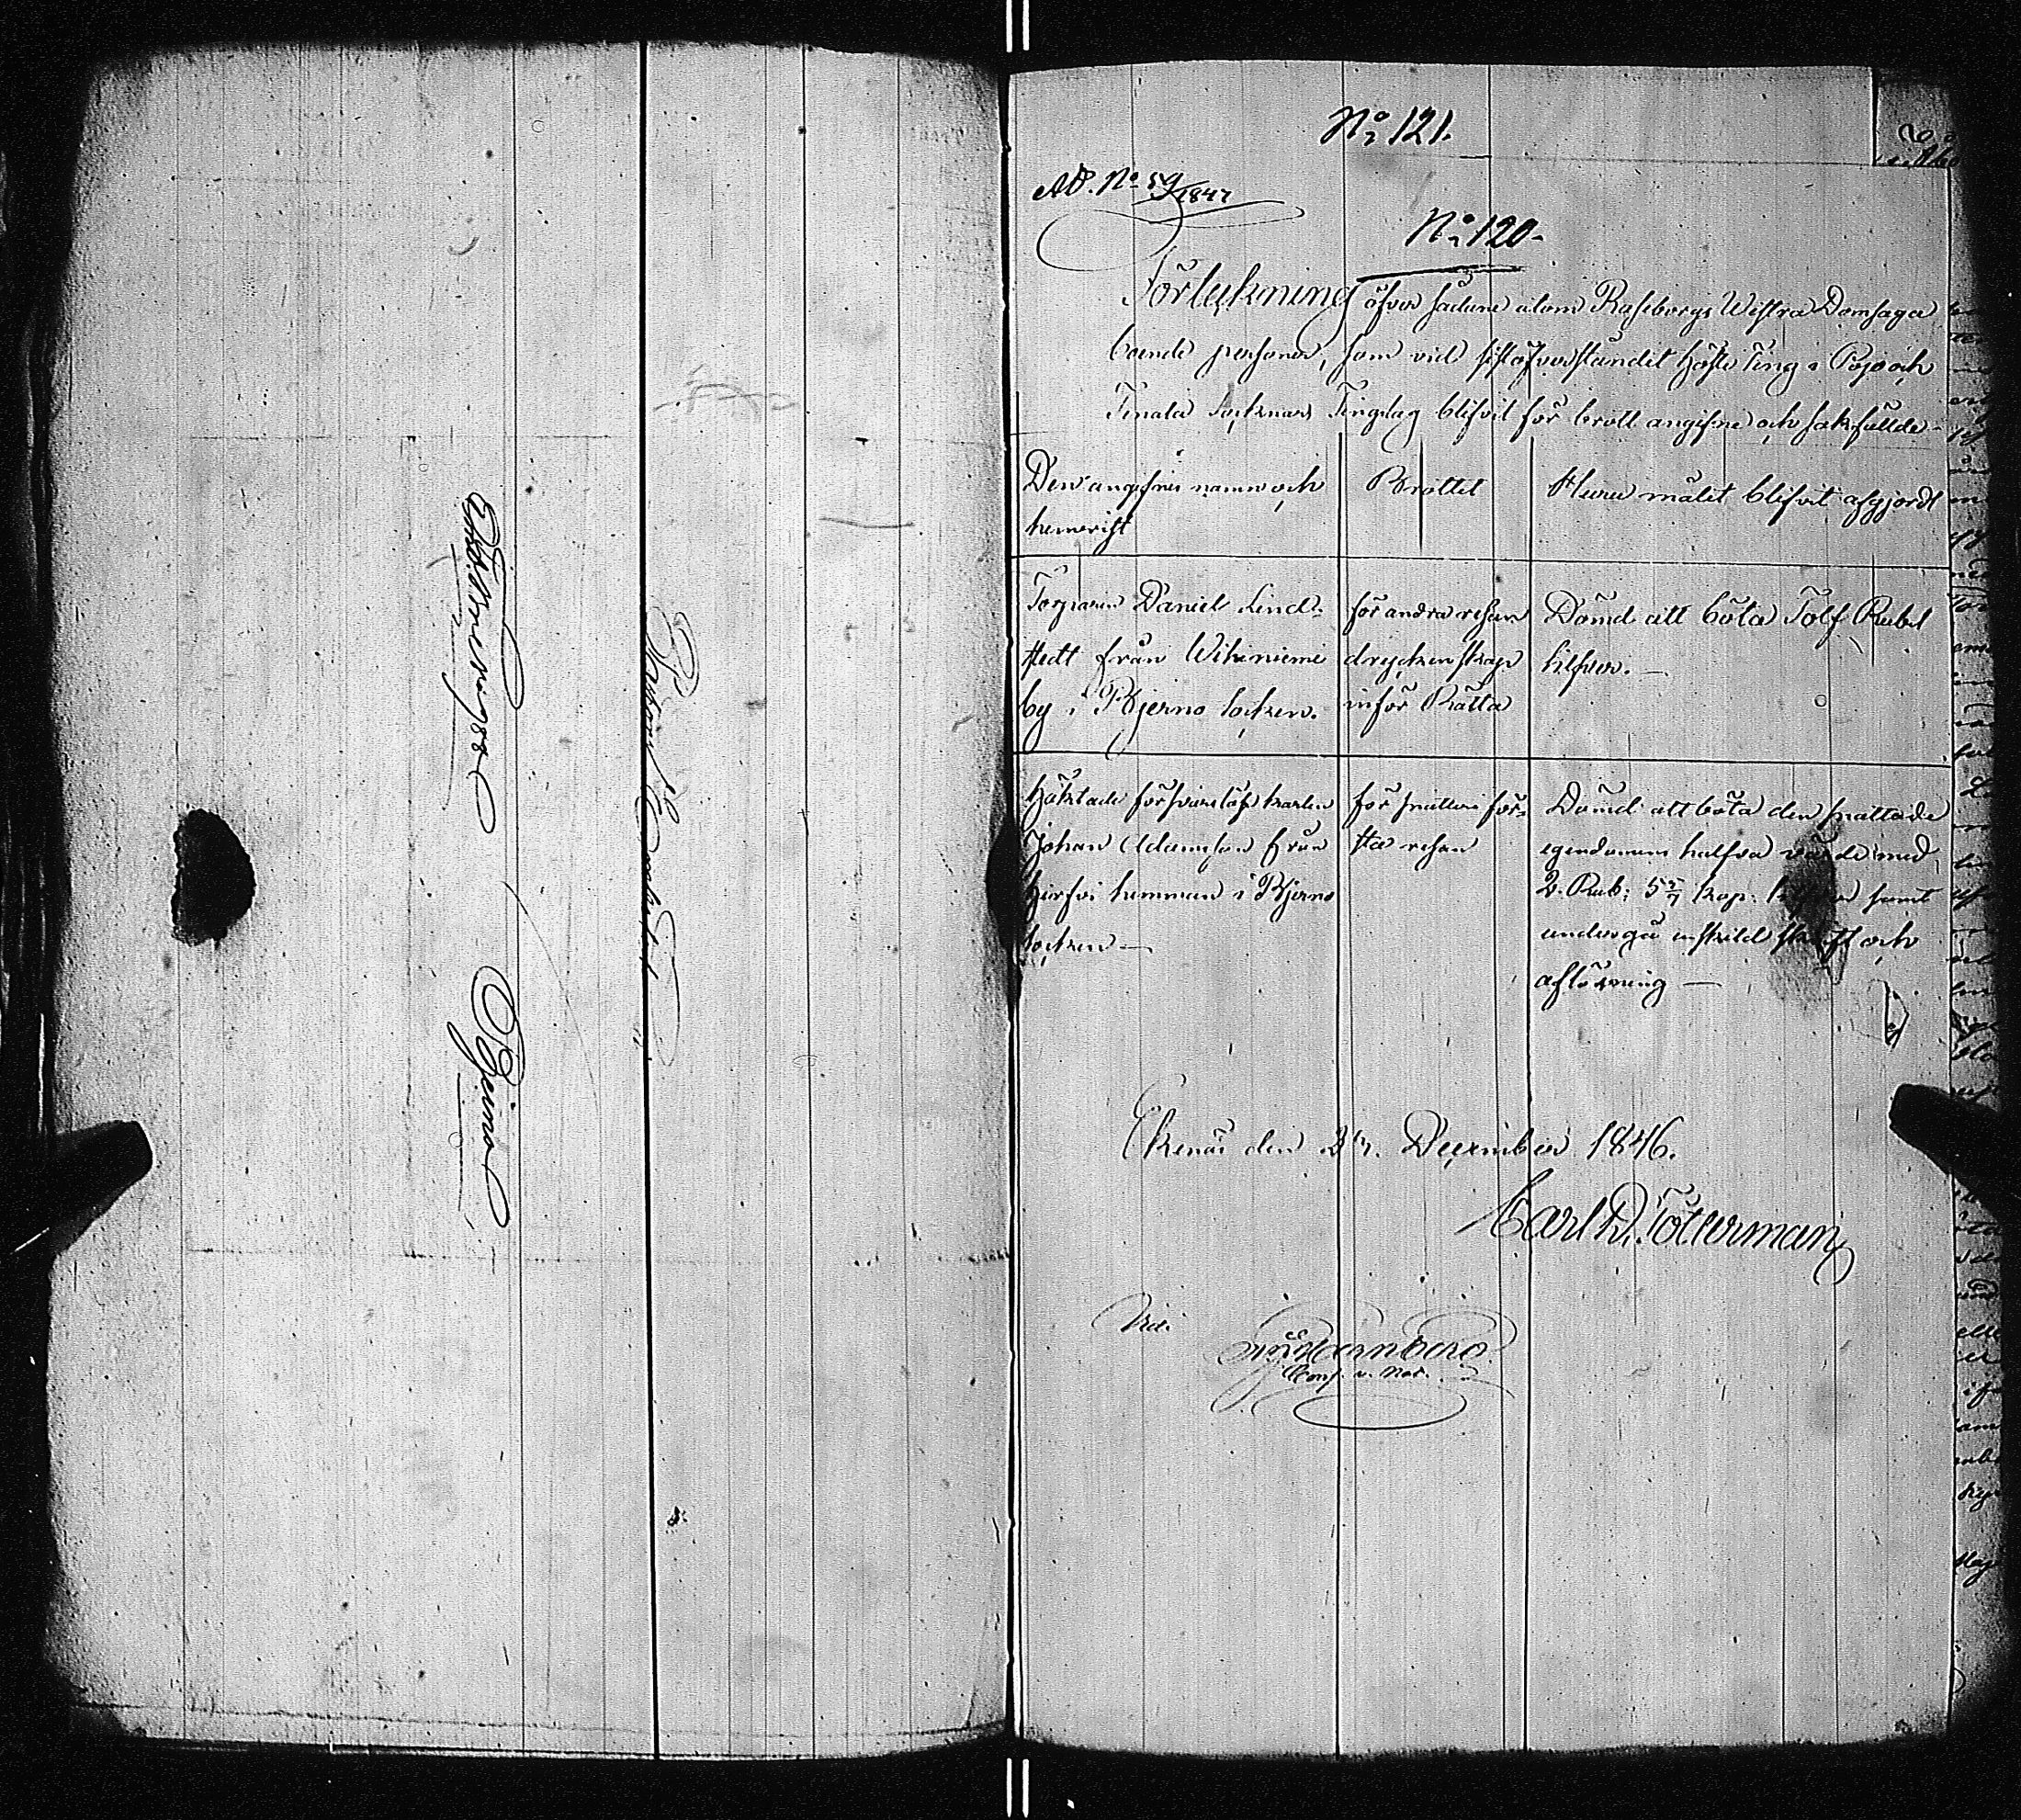 Bjerno
No 121.
AD. No 59/1847
No 120.
Förtekning öfver sådane utom Raseborgs Westra Domsaga
boende personer, som vid sistöfverståndet Höste Ting i Pojo och
Tenala Socknars Tingslag blifvit för brott angifne och sakfällde
Den angifnes namn och
hemvist
Brottet
Huru målet blifvit afgjordt
Torparen Daniel Lind-
stedt från Wihiniemi
by i Bjerno Socken.
för andra resan
dryckenskap
inför Rätta
Dömd att böta Tolf Rubel
silfver.
Häktade försvarslöse karlen
Johan Adamsson från
Hirfvi hemman i Bjerno
Socken
för snatteri för-
sta resan
Dömd att böta den snattade
egendomens halfva värde med
2. Rub: 5 5/7 kop: silfver samt
undergå enskild skrift och
aflösning
Ekenäs den December 1846.
Carl D. Tötterman
Vid.